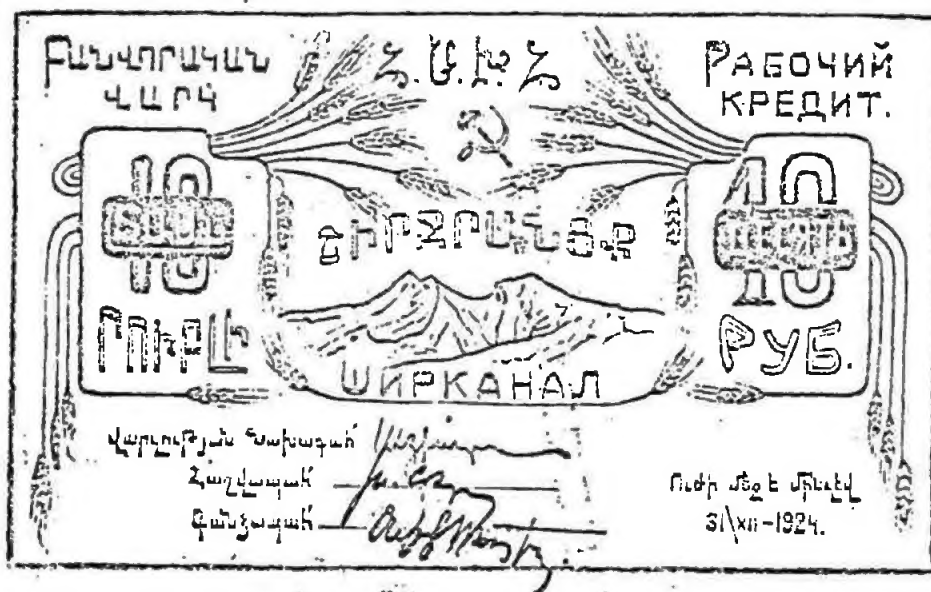 ԲԱՆՎՈՐԱԿԱՆ
ՎԱՐԿ
Հ.Ս.Խ.Հ
РАБОЧИЙ
КРЕДИТ.
10
10
ՌՈՒԲԼԻ
ՇԻՐՋՐԱՆՑՔ
ШИРКАНАЛ
10
10
РУБ.
Վարչության Նախագահ
Հաշվապահ
Գանձապահ
Ուժի մեջ է մինչև
31\XII-1924.